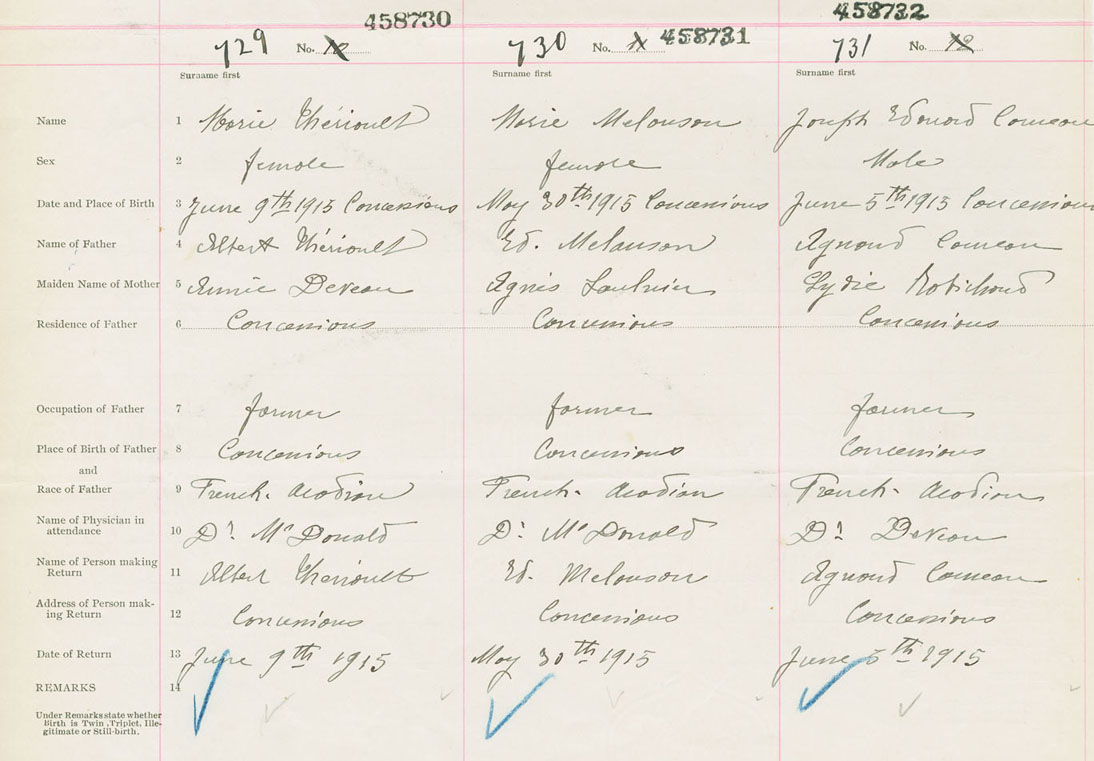 458730 458731 458732
729 No. 730 No. 731 No.
Surname first Surname first Surname first
Name 1 Marie Thériault Marie Melanson Joseph Edouard Comeau
Sex 2 female female Male
Date and Place of Birth 3 June 9th 1915 Concessions May 30th 1915 Concessions June 5th 1915 Concessions
Name of Father 4 Albert Thériault Ed. Melanson Comeau
Maiden Name of Mother 5 Annie Deveau Agnès Saulnier Lydie Robichaud
Residence of Father 6 Concessions Concessions Concessions
Occupation of Father 7 farmer farmer farmer
Place of Birth of Father 8 Concessions Concessions Concessions
and
Race of Father 9 French-Acadian French-Acadian French-Acadian
Name of Physician in
attendance 10 Dr McDonald Dr McDonald Dr Deveau
Name of Person making
Return 11 Albert Thériault Ed. Melanson Comeau
Address of Person mak-
ing Return 12 Concessions Concessions Concessions
Date of Return 13 June 9th 1915 May 30th 1915 June 5th 1915
REMARKS 14
Under Remarks state whether
Birth is Twin, Triplet, Ille-
gitimate or Still-birth.